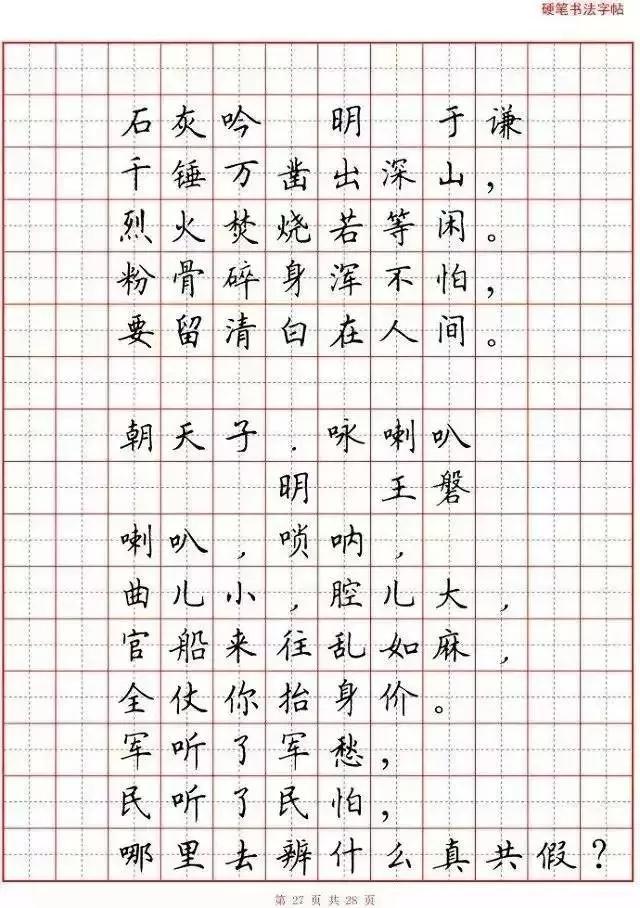 硬笔书法字帖
石灰吟 明 于谦
千锤万凿出深山，
烈火焚烧若等闲。
粉骨碎身浑不怕，
要留清白在人间。
朝天子．咏喇叭
明 王磐
喇叭，唢呐，
曲儿小，腔儿大，
官船来往乱如麻，
全仗你抬身价。
军听了军愁，
民听了民怕，
哪里去辨什么真共假？
第 27 页 共 28 页